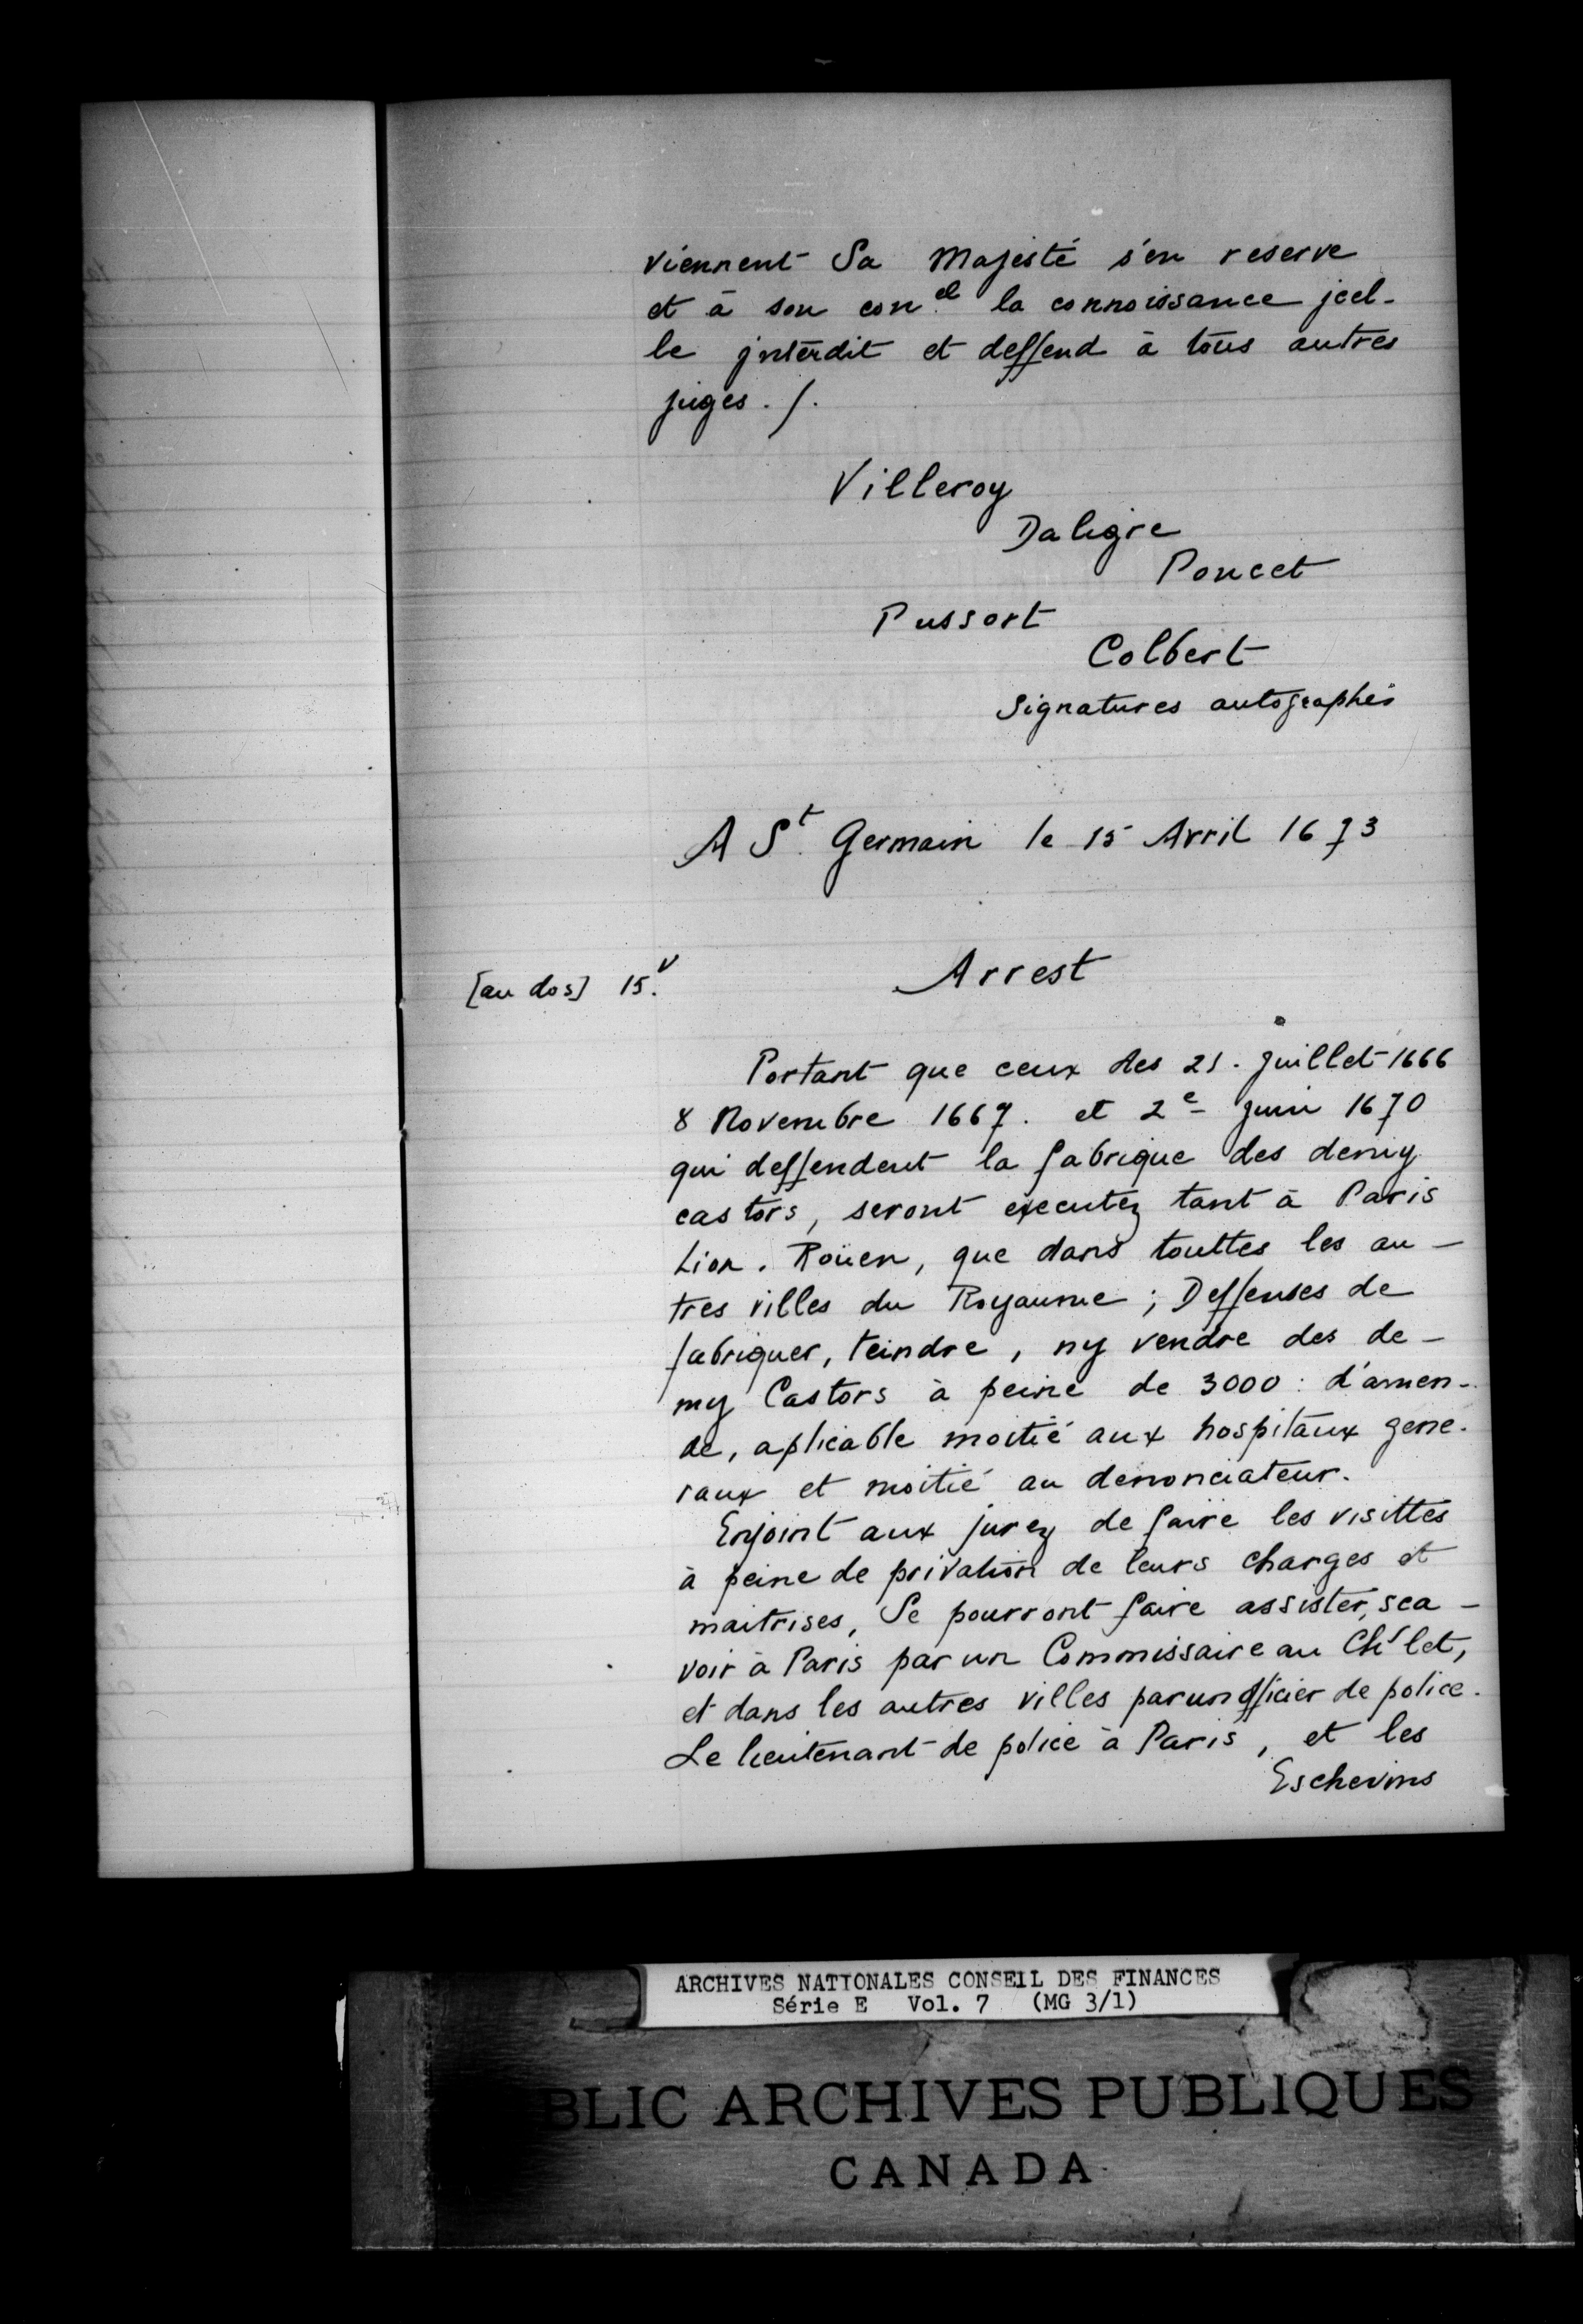 viennent Sa Majesté s'en reserve
et à son con.el la connoissance jcel-
le jnterdit et deffend à tous autres
juges./.
Villeroy
Daligre
Poncet
Pussort
Colbert
Signatures autographes
A St. Germain le 15 Avril 1673
[au dos] 15.v
Arrest
Portant que ceux des 21. Juillet 1666
8 Novembre 1667. et 2e Juin 1670
qui deffendent la fabrique des demy
castors, seront executez tant à Paris
Lion. Roüen, que dans touttes les au-
tres villes du Royaume; Deffenses de
fabriquer, teindre, ny vendre des de-
my Castors à peine de 3000: d'amen-
de, aplicable moitié aux hospitaux gene-
raux et moitié au denonciateur.
Enjoint aux jurez de faire les visittes
à peine de privation de leurs charges et
maitrises, Se pourront faire assister, sca-
voir à Paris par un Commissaire au Ch'let,
et dans les autres villes par un officier de police.
Le lieutenant de police à Paris, et les
Eschevins
ARCHIVES NATIONALES CONSEIL DES FINANCES
Série E Vol. 7 (MG 3/1)
BLIC ARCHIVES PUBLIQUES
CANADA